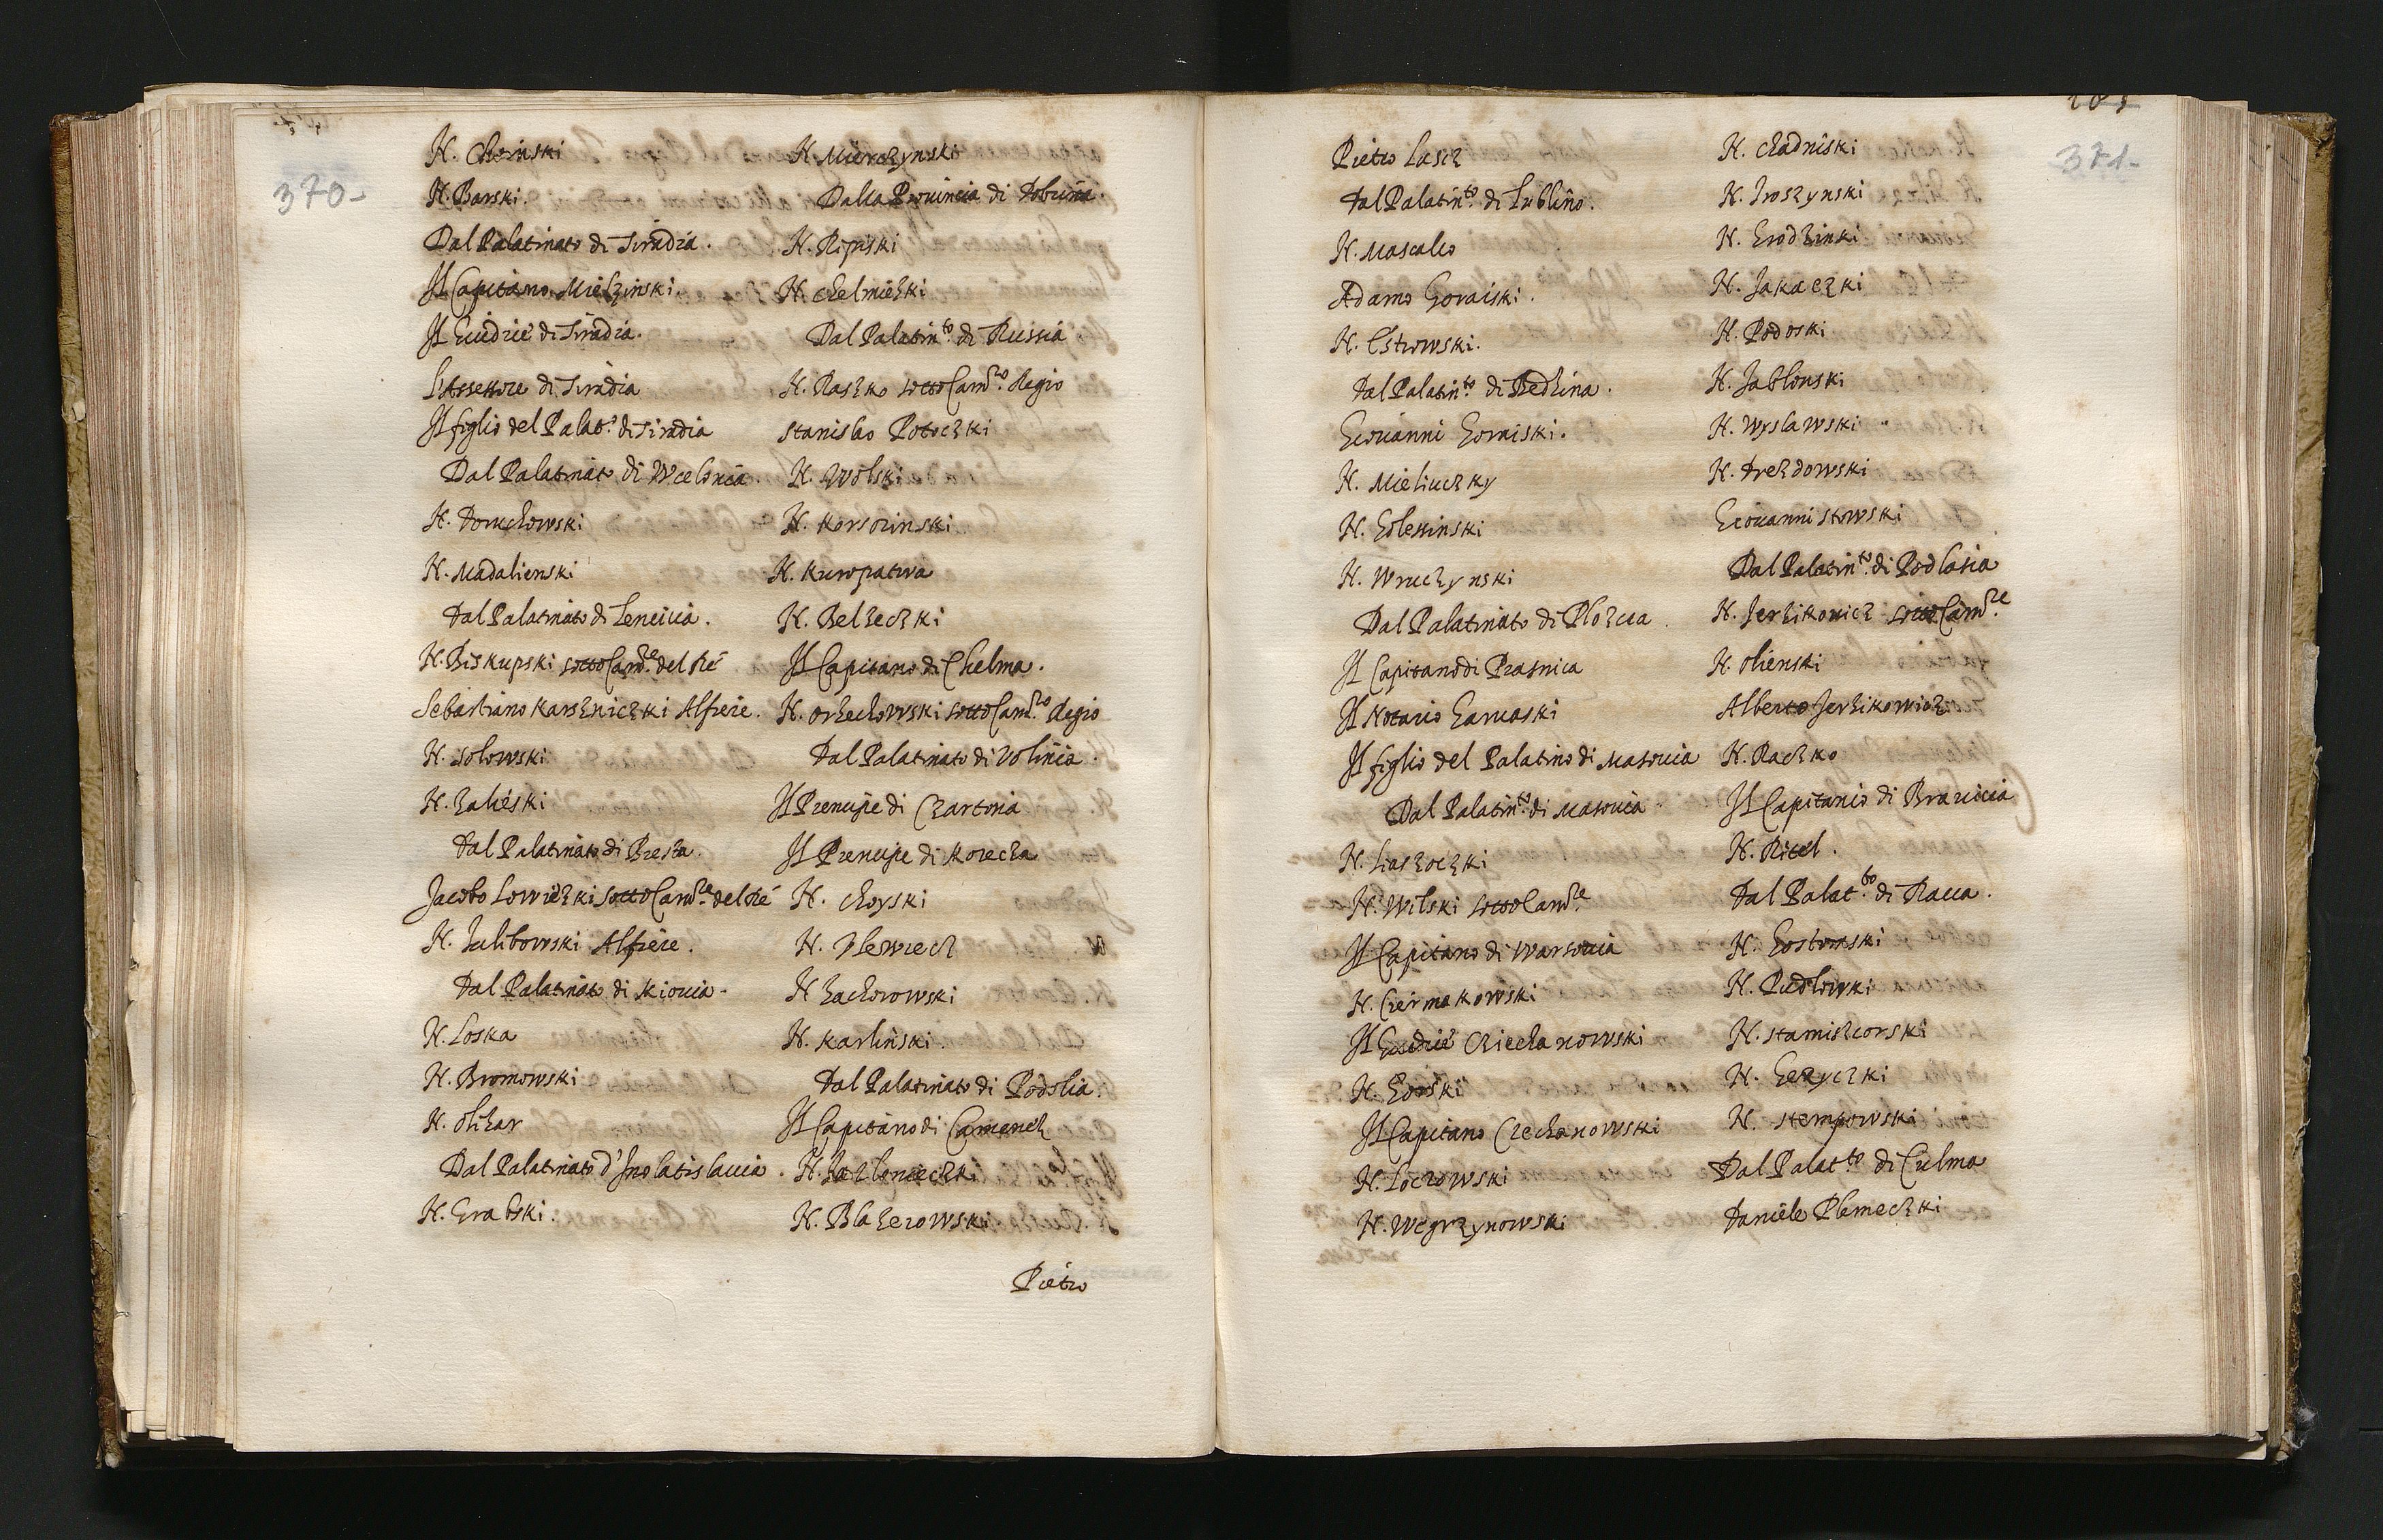 370-
N. Chozinski
N. Barski.
Dal Palatinato di Siradia.
Il Capitano Mielzinski
Il Giudice di Siradia.
L'Assessore di Siradia
Il figlio del Palat.º di Siradia
Dal Palatinato di Wcelonia
N. Doruchowski
N. Madalienski
Dal Palatinato di Lencicia.
N. Biskupski sotto Cam.re del Ré
Sebastiano Karszniczki Alfiere.
N. Solowski
N. Zaliéski
Dal Palatinato di Bresta.
Jacobo Lowiczki sotto Cam.re del Ré
N. Julibowski Alfiere.
Dal Palatinato di Kiouia.
N. Loska
N. Bromowski
N. Olizar
Dal Palatinato d'Inolatislauia.
N. Grabski.
N. Mierczynski
Dalla Prouincia di Dobrina.
N. Ripiski
N. Chelmiezki
Dal Palatin.to di Russia
N. Raszko sotto Cam.ro Regio
Stanislao Potoczki
N. Wolski
N. Korsozinski
N. Kuropatwa
N. Belzeczki
Il Capitano di Chelma.
N. Orzechowski sotto Cam.ro Regio
Dal Palatinato di Volinia.
Il Prencipe di Czartoria
Il Prencipe di Korecza
N. Choyski
N. Plewzecz
N Zachorowski
N. Karlinski.
Dal Palatinato di Podolia.
Il Capitano di Camenecz
N. Jazlonieczki
N. Blazerowski
Pietro
371-
Pietro Lascz
Dal Palatin.to di Lublino.
N. Mascalio
Adamo Goraiski.
N. Ostrowski.
Dal Palatin.to di Bedzina.
Giouanni Gomiski.
N. Mieliuczky
N. Goleskinski
N. Wruczynski
Dal Palatinato di Plozcia.
Il Capitano di Prasnica
Il Notario Garuaski
Il figlio del Palatino di Masouia
Dal Palatin.to di Masouia
N. Liaszoczki
N. Wilski sotto Cam.re
Il Capitano di Warsouia
N. Czermakowski
Il Giudice Cziechanowski
N. Gorski
Il Capitano Czechanowski
N. Loczowski
N. Wegrzynowski
N. Chadniski
N. Iroszynski
N. Grodzinki
N. Jakaczki
N. Podoski
N. Jablonski
N. Wyslawski
N. Drezdowski
Giouanni Stowski
Dal Palatin.to di Podlasia
N. Jerzikouicz sotto Cam.re
N. Olienski
Alberto Jerzikowicz
N. Raczko
Il Capitanio di Branicia
N. Ritel.
Dal Palat.to di Raua.
N. Gostomski
N. Pudlowki
N. Stamiszcorski
N. Gezyczki
N. Stempowski
Dal Palat.to di Culma
Daniele Plemeczki